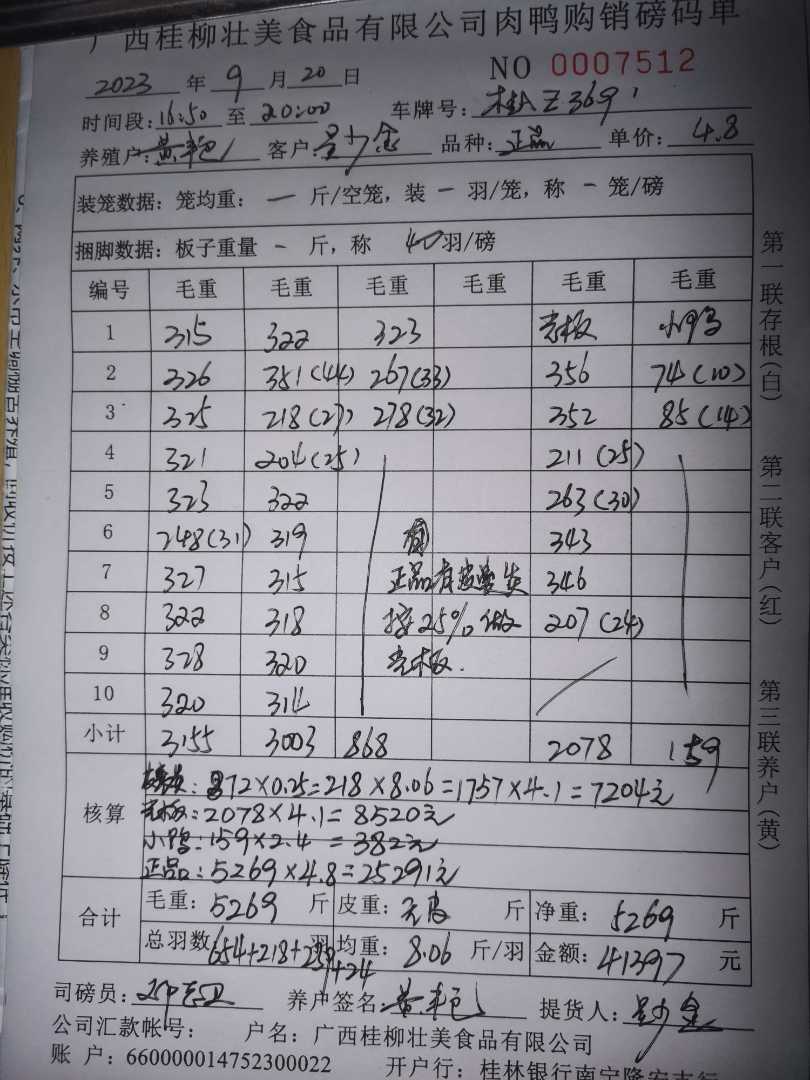 广西桂柳壮美食品有限公司肉鸭购销磅码单
2023 年 9 月 20 日 NO 0007512
时间段:16:50 至 20:00 车牌号:桂AZ369
养殖户: 客户:吴少金 品种:正品 单价:4.8
装笼数据:笼均重: 一 斤/空笼,装 一 羽/笼,称 一 笼/磅
捆脚数据:板子重量 一 斤,称 40羽/磅
编号 毛重 毛重 毛重 毛重 毛重
1 315 322 323 壳板 小鸭
2 326 351(44) 267(33) 356 74(10)
3 325 218(27) 278(32) 352 85(14)
4 321 204(25) 211(25)
5 323 322 263(30)
6 248(31) 319 343
7 327 315 正品有 346
8 322 318 按25%做 207(24)
9 328 320 壳板.
10 320 314
小计 3155 3003 868 2078 159
核算
872×0.25=218×8.06=1757×4.1=7204元
壳板:2078×4.1=8520元
小鸭:159×2.4=382元
正品:5269×4.8=25291元
合计
毛重:5269 斤 皮重: 斤 净重:5269 斤
总羽数:654+218+239+24 羽 均重:8.06 斤/羽 金额:41397 元
司磅员: 养户签名: 提货人:吴少金
公司汇款帐号: 户名:广西桂柳壮美食品有限公司
账 户:660000014752300022 开户行:桂林银行南宁隆安支行
第一联存根(白)
第二联客户(红)
第三联养户(黄)